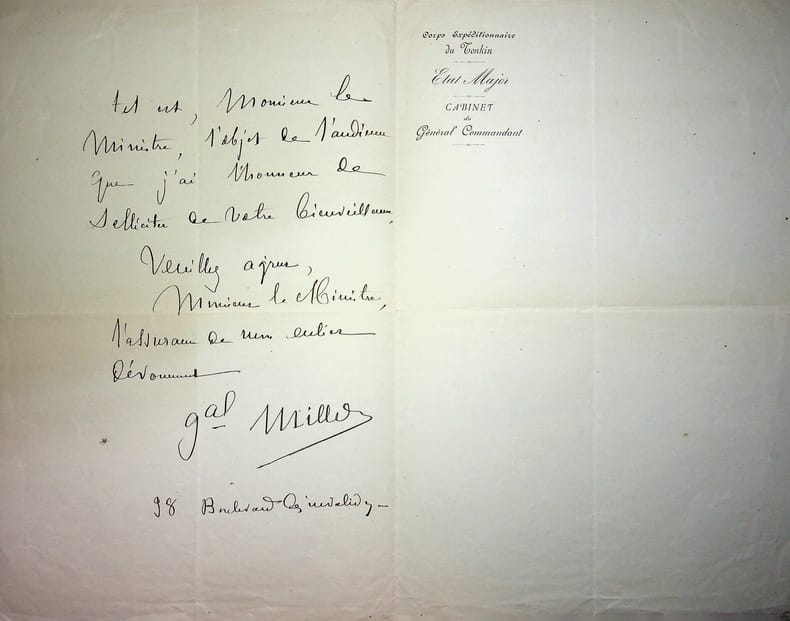 tel est, Monsieur le
Ministre, l'objet de l'audience
que j'ai l'honneur de
solliciter de votre bienveillance.
Veuillez agréer,
Monsieur le Ministre,
l'assurance de mon entier
dévouement
gal Millot
98 Boulevard des invalides
Corps Expéditionnaire
du Tonkin
Etat Major
CABINET
du
Général Commandant